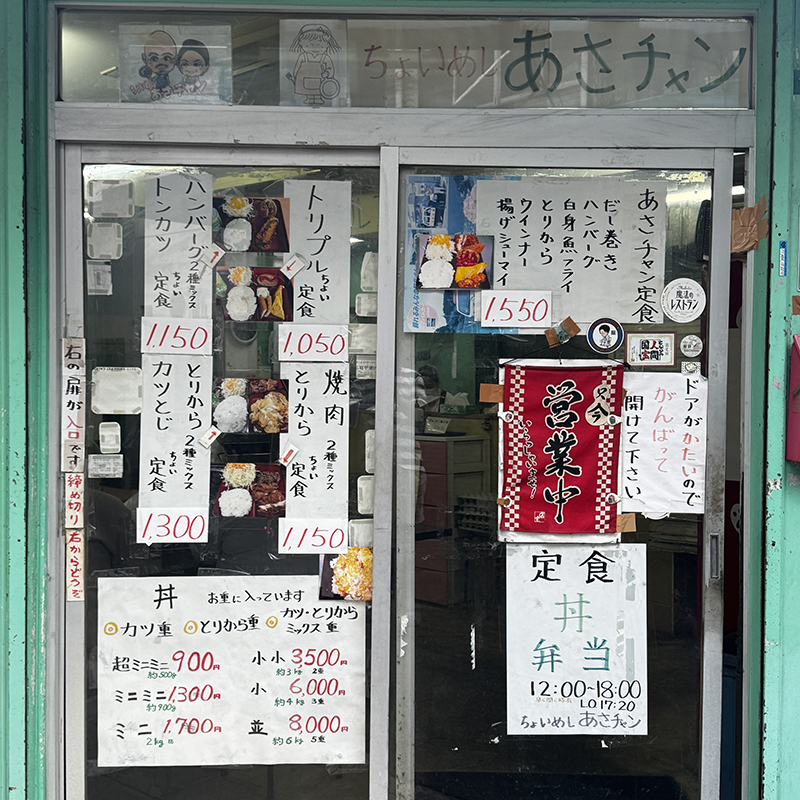 ちょいめし あさチャン
ハンバーグ
トンカツ
2種ミックス
ちょい
定食
1,150
トリプル
ちょい
定食
1,050
あさチャン定食
だし巻き
ハンバーグ
白身魚フライ
とりから
ウインナー
揚げシューマイ
1,550
魔法の
レストラン
とりから
カツとじ
2種ミックス
ちょい
定食
1,300
焼肉
とりから
2種ミックス
ちょい
定食
1,150
右の扉が入口です
締め切り
右からどうぞ
只今
営業中
いらっしゃいませ!
ドアがかたいので
がんばって
開けて下さい
丼 お重に入っています
カツ重 とりから重 カツ・とりから
ミックス重
超ミニミニ 900円
約500g
ミニミニ 1,300円
約900g
ミニ 1,700円
2kg
小小 3,500円
約3kg 2重
小 6,000円
約4kg 3重
並 8,000円
約6kg 5重
定食
丼
弁当
12:00~18:00
L.O.17:20
ちょいめしあさチャン